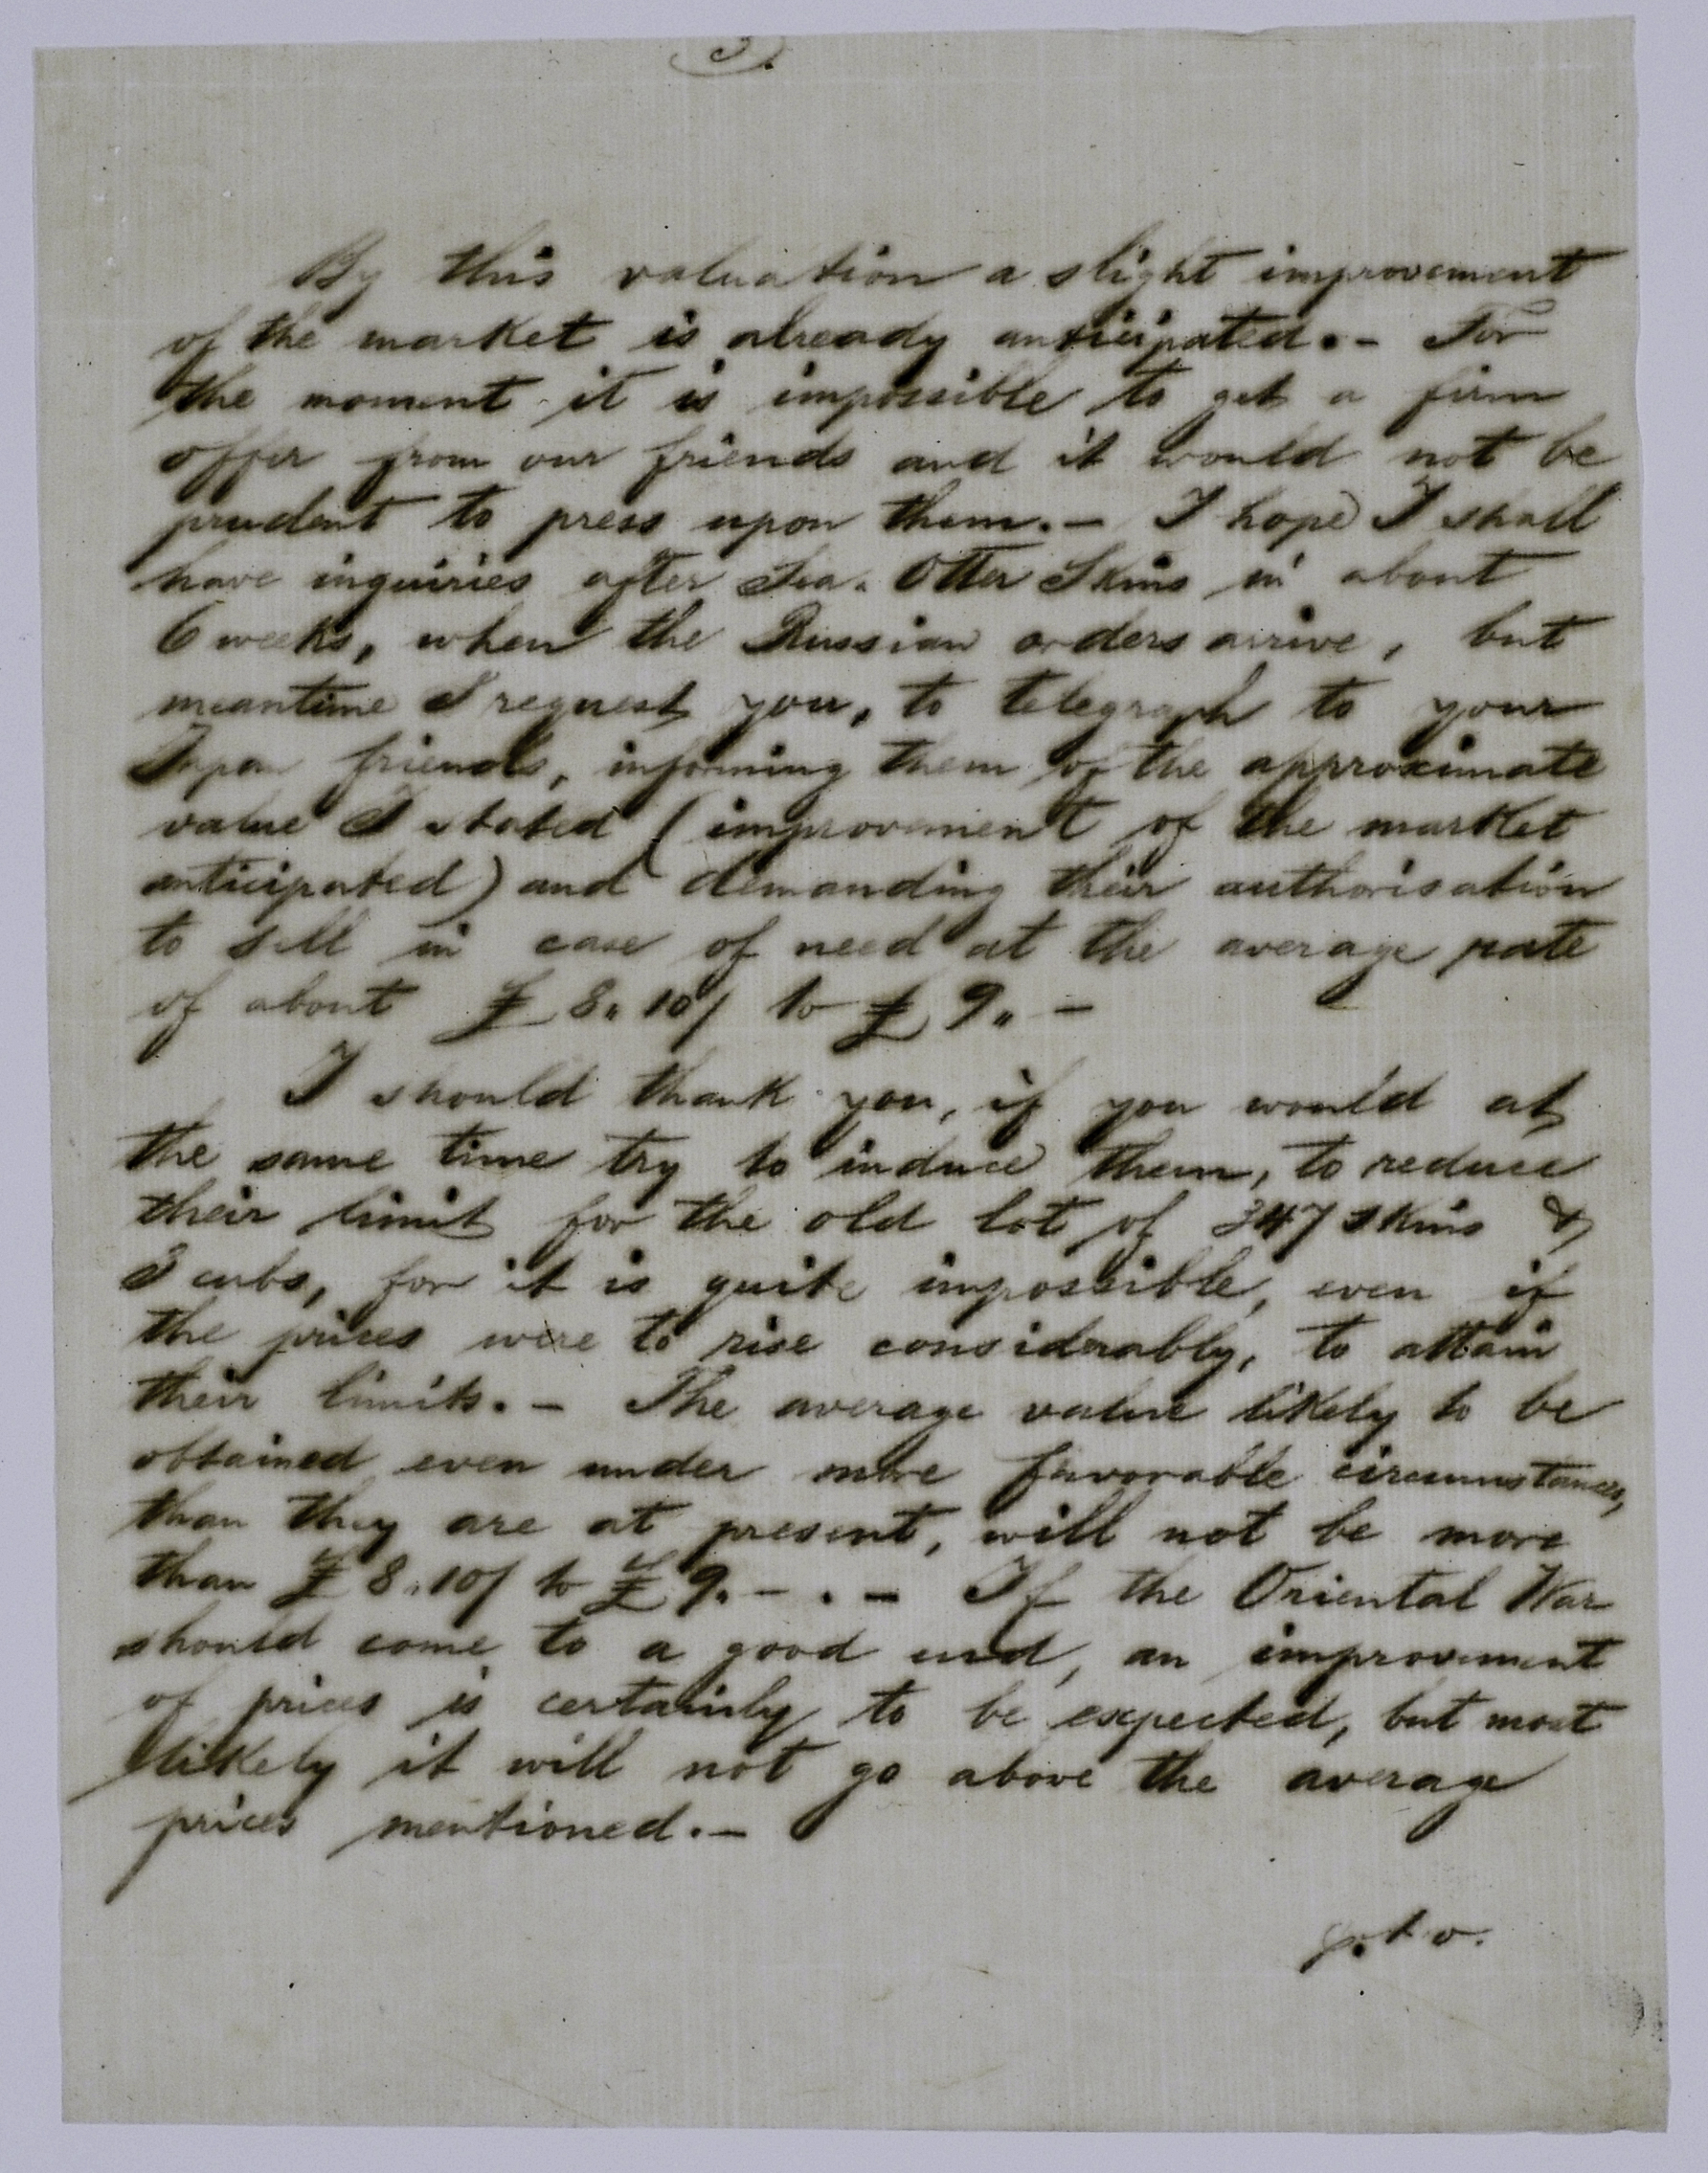 3).
By this valuation a slight improvement
of the market is already anticipated.- For
the moment it is impossible to get a firm
offer from our friends and it would not be
prudent to press upon them.- I hope I shall
have inquiries after Sea. Otter Skins in about
6 weeks, when the Russian orders arrive, but
meantime I request you, to telegraph to your
Japan friends, informing them of the approximate
value I stated (improvement of the market
anticipated) and demanding their authorisation
to sell in case of need at the average rate
of about £ 8„ 10/ to £ 9„ -
I should thank you, if you would at
the same time try to induce them, to reduce
their limit for the old lot of 347 skins &
3 cubs, for it is quite impossible, even if
the prices were to rise considerably, to attain
their limits.- The average value likely to be
obtained even under more favorable circumstances,
than they are at present, will not be more
than £ 8„10/ to £ 9.- .- If the Oriental War
should come to a good end, an improvement
of prices is certainly to be expected, but most
likely it will not go above the average
prices mentioned.-
p.t.o.